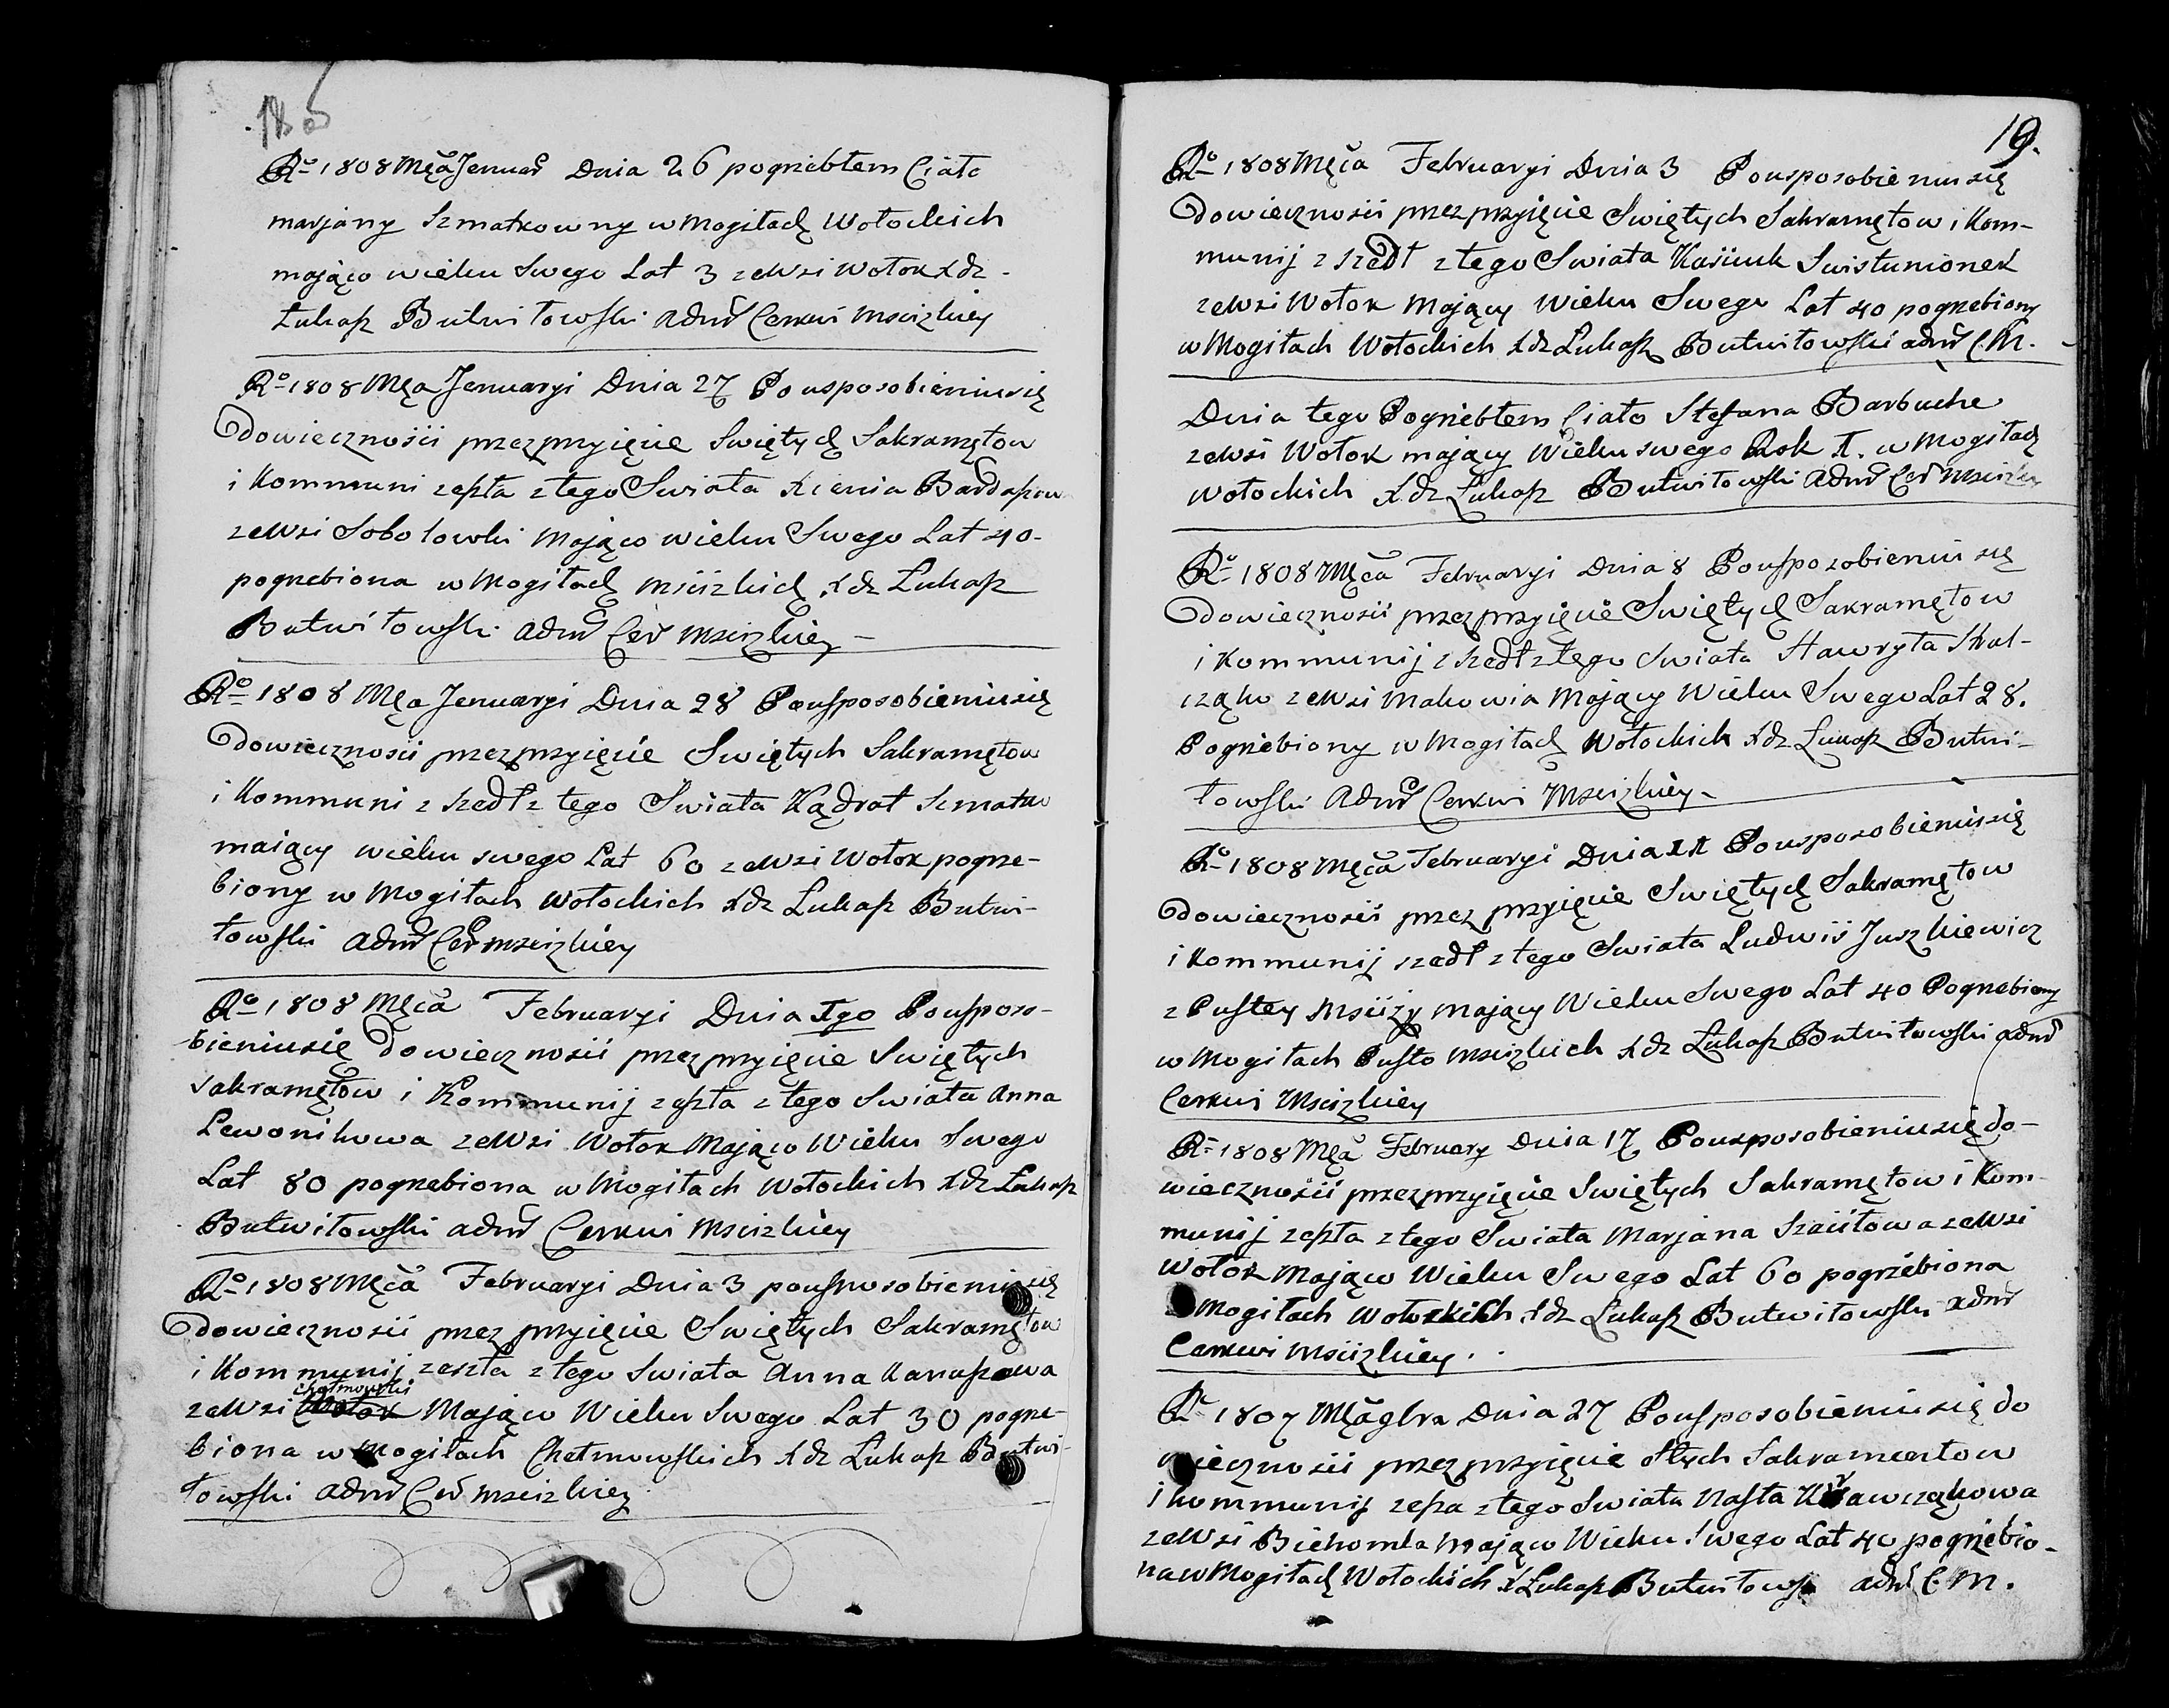 Ro 1808 Męca Jenuar Dnia 26 pogriebłem Ciało
marjany Szmatkowny w Mogiłach Wołockich
mająco wieku Swego Lat 3 zeWsi Wołok Xdz
Łukasz Butwiłowski Admr Cerkwi Mscizkiey
Ro 1808 Męa Jenuaryi Dnia 27 Pousposobieniusię
dowiecznosii przezprzyięcie Swiętych Sakramętow
i Kommuni zeszła ztego Swiata Xienia Bardaszow
zeWsi Sobotowki Mająco wieku Swego Lat 40
pogrzebiona w Mogiłach Mscizkich Xdz Łukasz
Butwiłowski Admr Cer Mscizkiey
Ro 1808 Męa Jenuaryi Dnia 28 Pousposobieniusię
dowiecznosii przezprzyięcie Swiętych Sakramętow
i Kommuni z szedł z tego Swiata Kądrat Szmatko
maiący wieku swego Lat 60 zeWsi Wołok pogrze-
biony w Mogiłach Wołockich Xdz Łukasz Butwi-
łowski Admr Cer Mscizkiey
Ro 1808 Męca Februaryi Dnia 1go Pousposo-
bieniusię dowiecznosii przezprzyięcie Swiętych
Sakramętow i Kommunij zeszła ztego Swiata Anna
Lewonikowa zeWsi Wołok Mająco Wieku Swego
Lat 80 pogrzebiona w Mogiłach Wołockich Xdz Łukasz
Butwiłowski admr Cerkwi Mscizkiey
Ro 1808 Męca Februaryi Dnia 3 pousposobieniusię
dowiecznosii przez przyięcie Swiętych Sakramętow
i Kommunij zeszła ztego Swiata Anna Kanaszowa
chołmowki
zeWsi Wołok Mająco Wieku Swego Lat 30 pogrze-
biona w Mogiłach Chełmowskich Xdz Łukasz Butwi-
łowski Admr Cer Mscizkiey
19.
Ro 1808 Męca Februaryi Dnia 3 Pousposobieniusię
dowiecznosii przezprzyięcie Swiętych Sakramętow i Kom-
munij z szedł ztego Swiata Kasiuk Swistunionek
zeWsi Wołok Mający Wieku Swego Lat 40 pogrzebiony
w Mogiłach Wołockich Xdz Łukasz Butwiłowski admr C M.
Dnia tego Pogriebłem Ciało Stefana Barbuche
zeWsi Wołok mający Wieku swego Rok 1. w Mogiłach
Wołockich Xdz Łukasz Butwiłowski Admr Cer Mscizkiey
Ro 1808 Męca Februaryi Dnia 8 Pousposobieniu się
dowiecznosii przezprzyięcie Swiętych Sakramętow
i Kommunij z szedł ztego Swiata Hawryła Skal-
cząko zeWsi Makowia Mający Wieku Swego Lat 28.
Pogriebiony w Mogiłach Wołockich Xdz Łukasz Butwi-
łowski Admr Cerkwi Mscizkiey
Ro 1808 Męca Februaryi Dnia 11 Pousposobieniusię
dowiecznosii przez przyięcie Swiętych Sakramętow
i Kommunij szedł ztego Swiata Ludwis Juszkiewicz
z Pustey Mscizy mający Wieku Swego Lat 40 Pogrzebiony
w Mogiłach Pusto Mscizkich Xdz Łukasz Butwiłowski admr
Cerkwi Mscizkiey
Ro 1808 Męa February Dnia 17 Pousposobieniusię do-
wiecznosii przezprzyięcie Swiętych Sakramętow i Kom-
munij zeszła ztego Swiata Marjana Szaiiłowa zeWsi
Wołok Mająco Wieku Swego Lat 60 pogrzebiona
Mogiłach Wołockich Xdz Łukasz Butwiłowski admr
Cerkwi Mscizkiey.
Ro 1807 Mca 9bra Dnia 27 Pousposobieniusię do
wiecznosii przezprzyięcie Stych Sakramentow
i kommunij zesza ztego Swiata Nasta Krawcząkowa
zeWsi Biehomla Mająco Wieku Swego Lat 40 pogriebio-
na w Mogiłach Wołockich X Łukasz Butwiłowski admr C M.